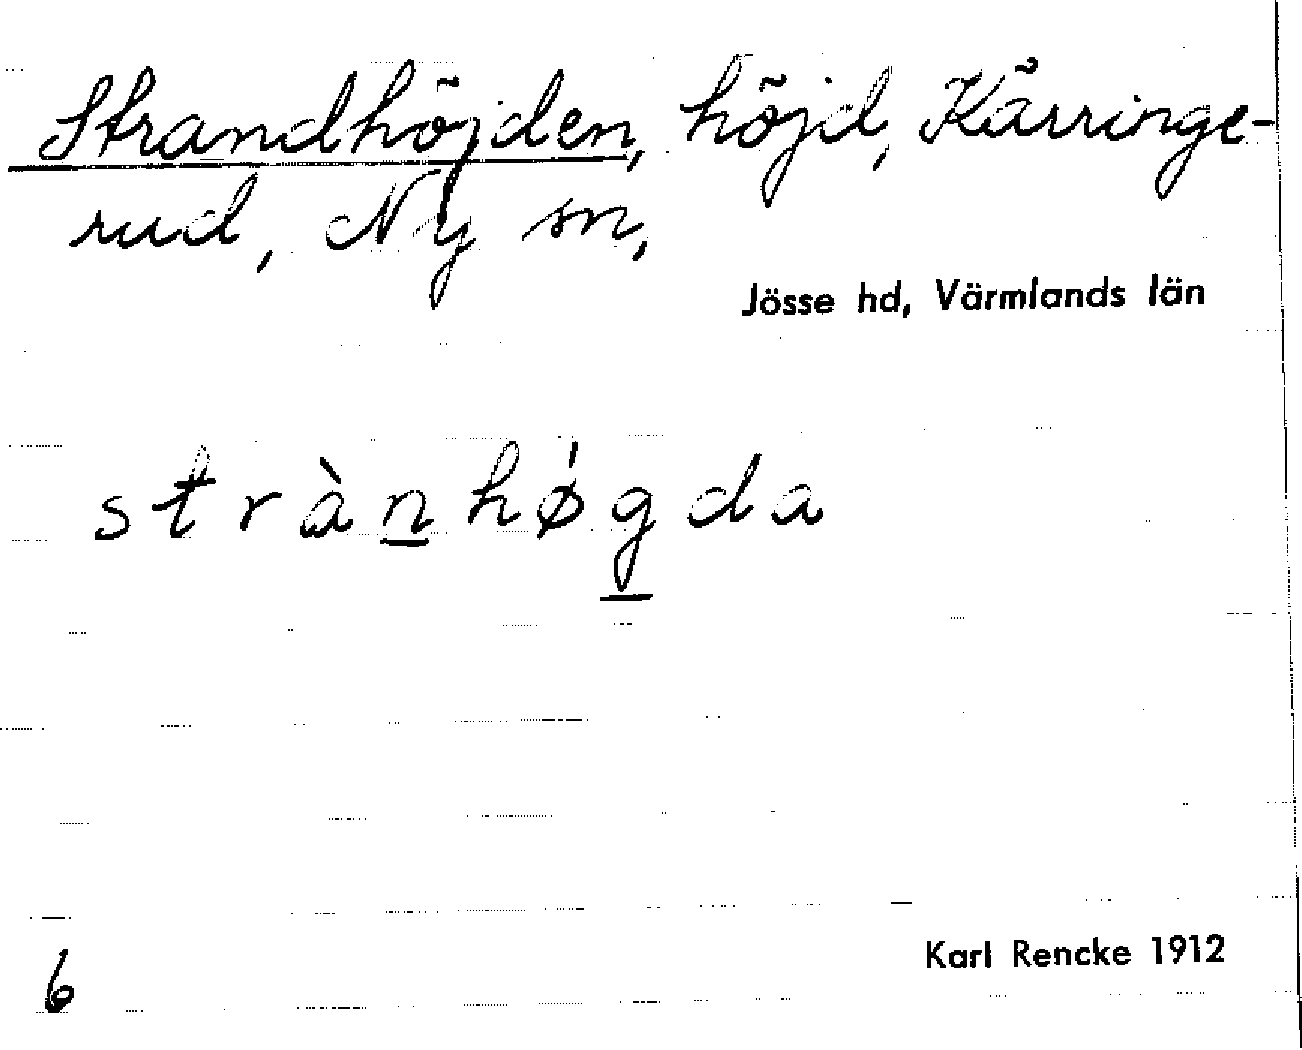 Strandhöjden, höjd, Kärringe-
rud, Ny sn,
Jösse hd, Värmlands län
strànhǿgda
6
Karl Rencke 1912